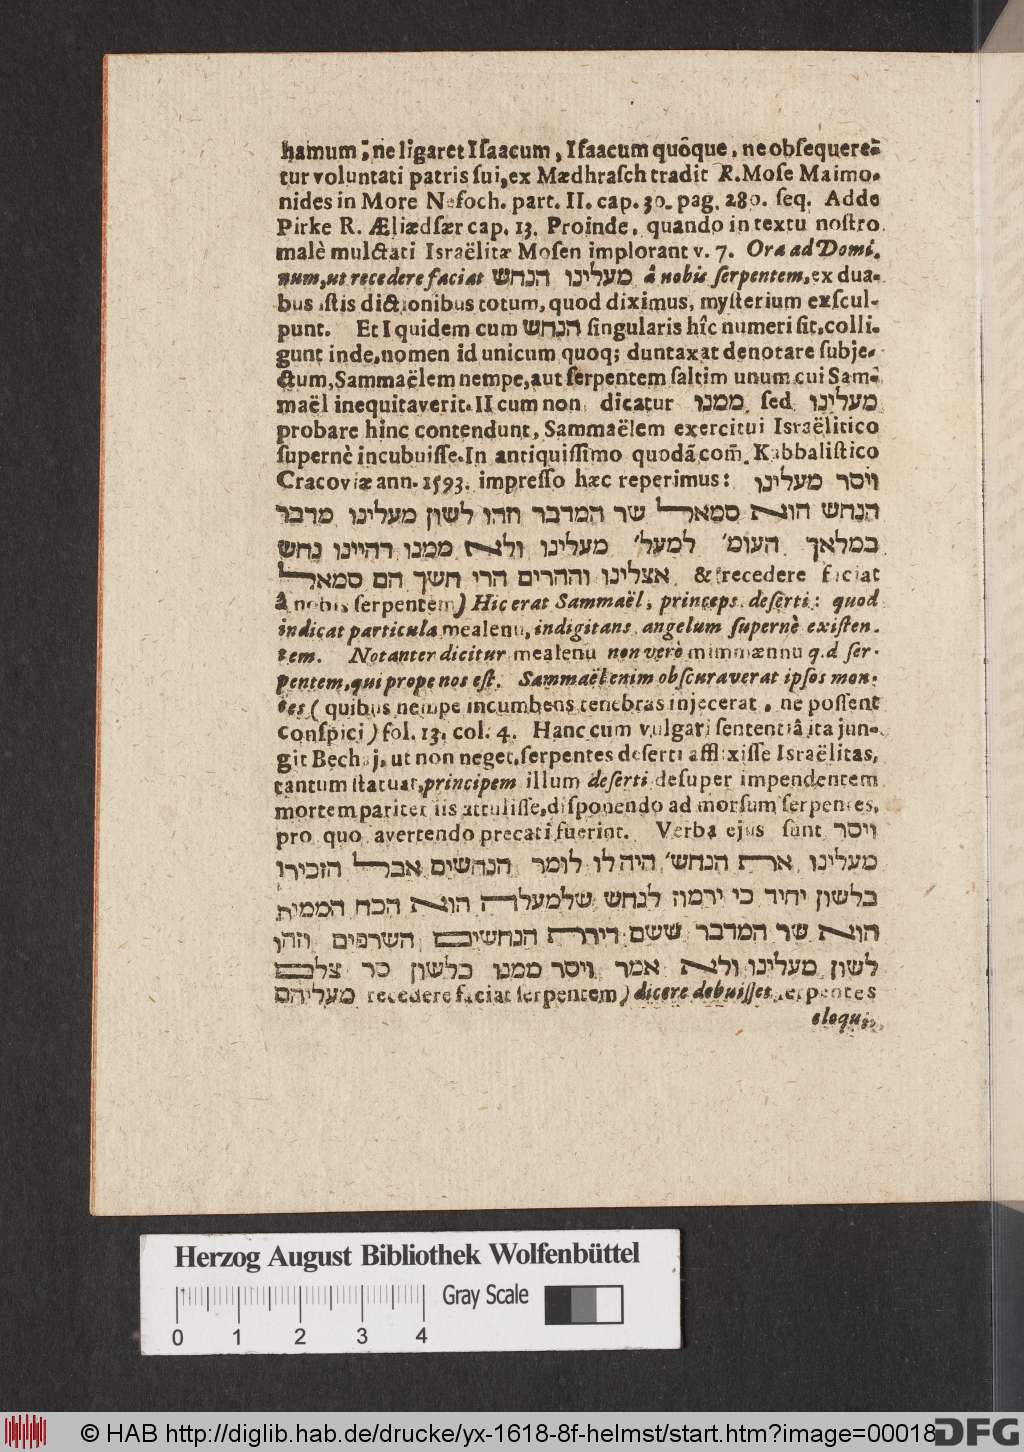 hamum, ne ligaret Isaacum, Isaacum quoque, ne obsequere-
tur voluntati patris sui, ex Mædhrasch tradit R. Mose Maimo-
nides in More Nefoch. part. II. cap. 30. pag. 280. seq. Adde
Pirke R. Æliædsær cap. 13. Proinde, quando in textu nostro
malè mulctati Israëlitæ Mosen implorant v. 7. Ora ad Domi-
num, ut recedere faciat מעלינו הנחש â nobis serpentem, ex dua-
bus istis dictionibus totum, quod diximus, mysterium exscul-
punt. Et I quidem cum הנחש singularis hîc numeri sit, colli-
gunt inde, nomen id unicum quoq; duntaxat denotare subje-
ctum, Sammaëlem nempe, aut serpentem saltim unum cui Sam-
maël inequitaverit. II cum non dicatur ממנו sed מעלינו
probare hinc contendunt, Sammaëlem exercitui Israëlitico
supernè incubuisse. In antiquissimo quodã com̃. Kabbalistico
Cracoviæ ann. 1593. impresso hæc reperimus: ויסר מעלינו
הנחש הוא סמאל שר המדבר וזהו לשון מעלינו מדבר
במלאך העומ׳ למעל׳ מעלינו ולא ממנו דהיינו נחש
אצלינו וההרים הרי חשך הם סמאל & recedere faciat
â nobis serpentem) Hic erat Sammaël, princeps deserti: quod
indicat particula mealenu, indigitans angelum supernè existen-
tem. Notanter dicitur mealenu non verò mimmænnu q.d ser-
pentem, qui prope nos est. Sammaël enim obscuraverat ipsos mon-
tes (quibus nempe incumbens tenebras injecerat, ne possent
conspici) fol. 13. col. 4. Hanc cum vulgari sententiâ ita jun-
git Bechaj, ut non neget, serpentes deserti afflixisse Israëlitas,
tantum statuat, principem illum deserti desuper impendentem
mortem pariter iis attulisse, disponendo ad morsum serpentes,
pro quo avertendo precati fuerint. Verba ejus sunt ויסר
מעלינו את הנחש׳ היה לו לומר הנחשים אבל הזכירו
בלשון יחיד כי ירמוז לנחש שלמעלה הוא הכח הממית
הוא שר המדבר ששם דירת הנחשים השרפים וזהו
לשון מעלינו ולא אמר ויסר ממנו כלשון סר צלם
מעליהם recedere faciat serpentem) dicere debuisset, serpentes
eloqu-
Herzog August Bibliothek Wolfenbüttel
Gray Scale
0 1 2 3 4
© HAB http://diglib.hab.de/drucke/yx-1618-8f-helmst/start.htm?image=00018
DFG